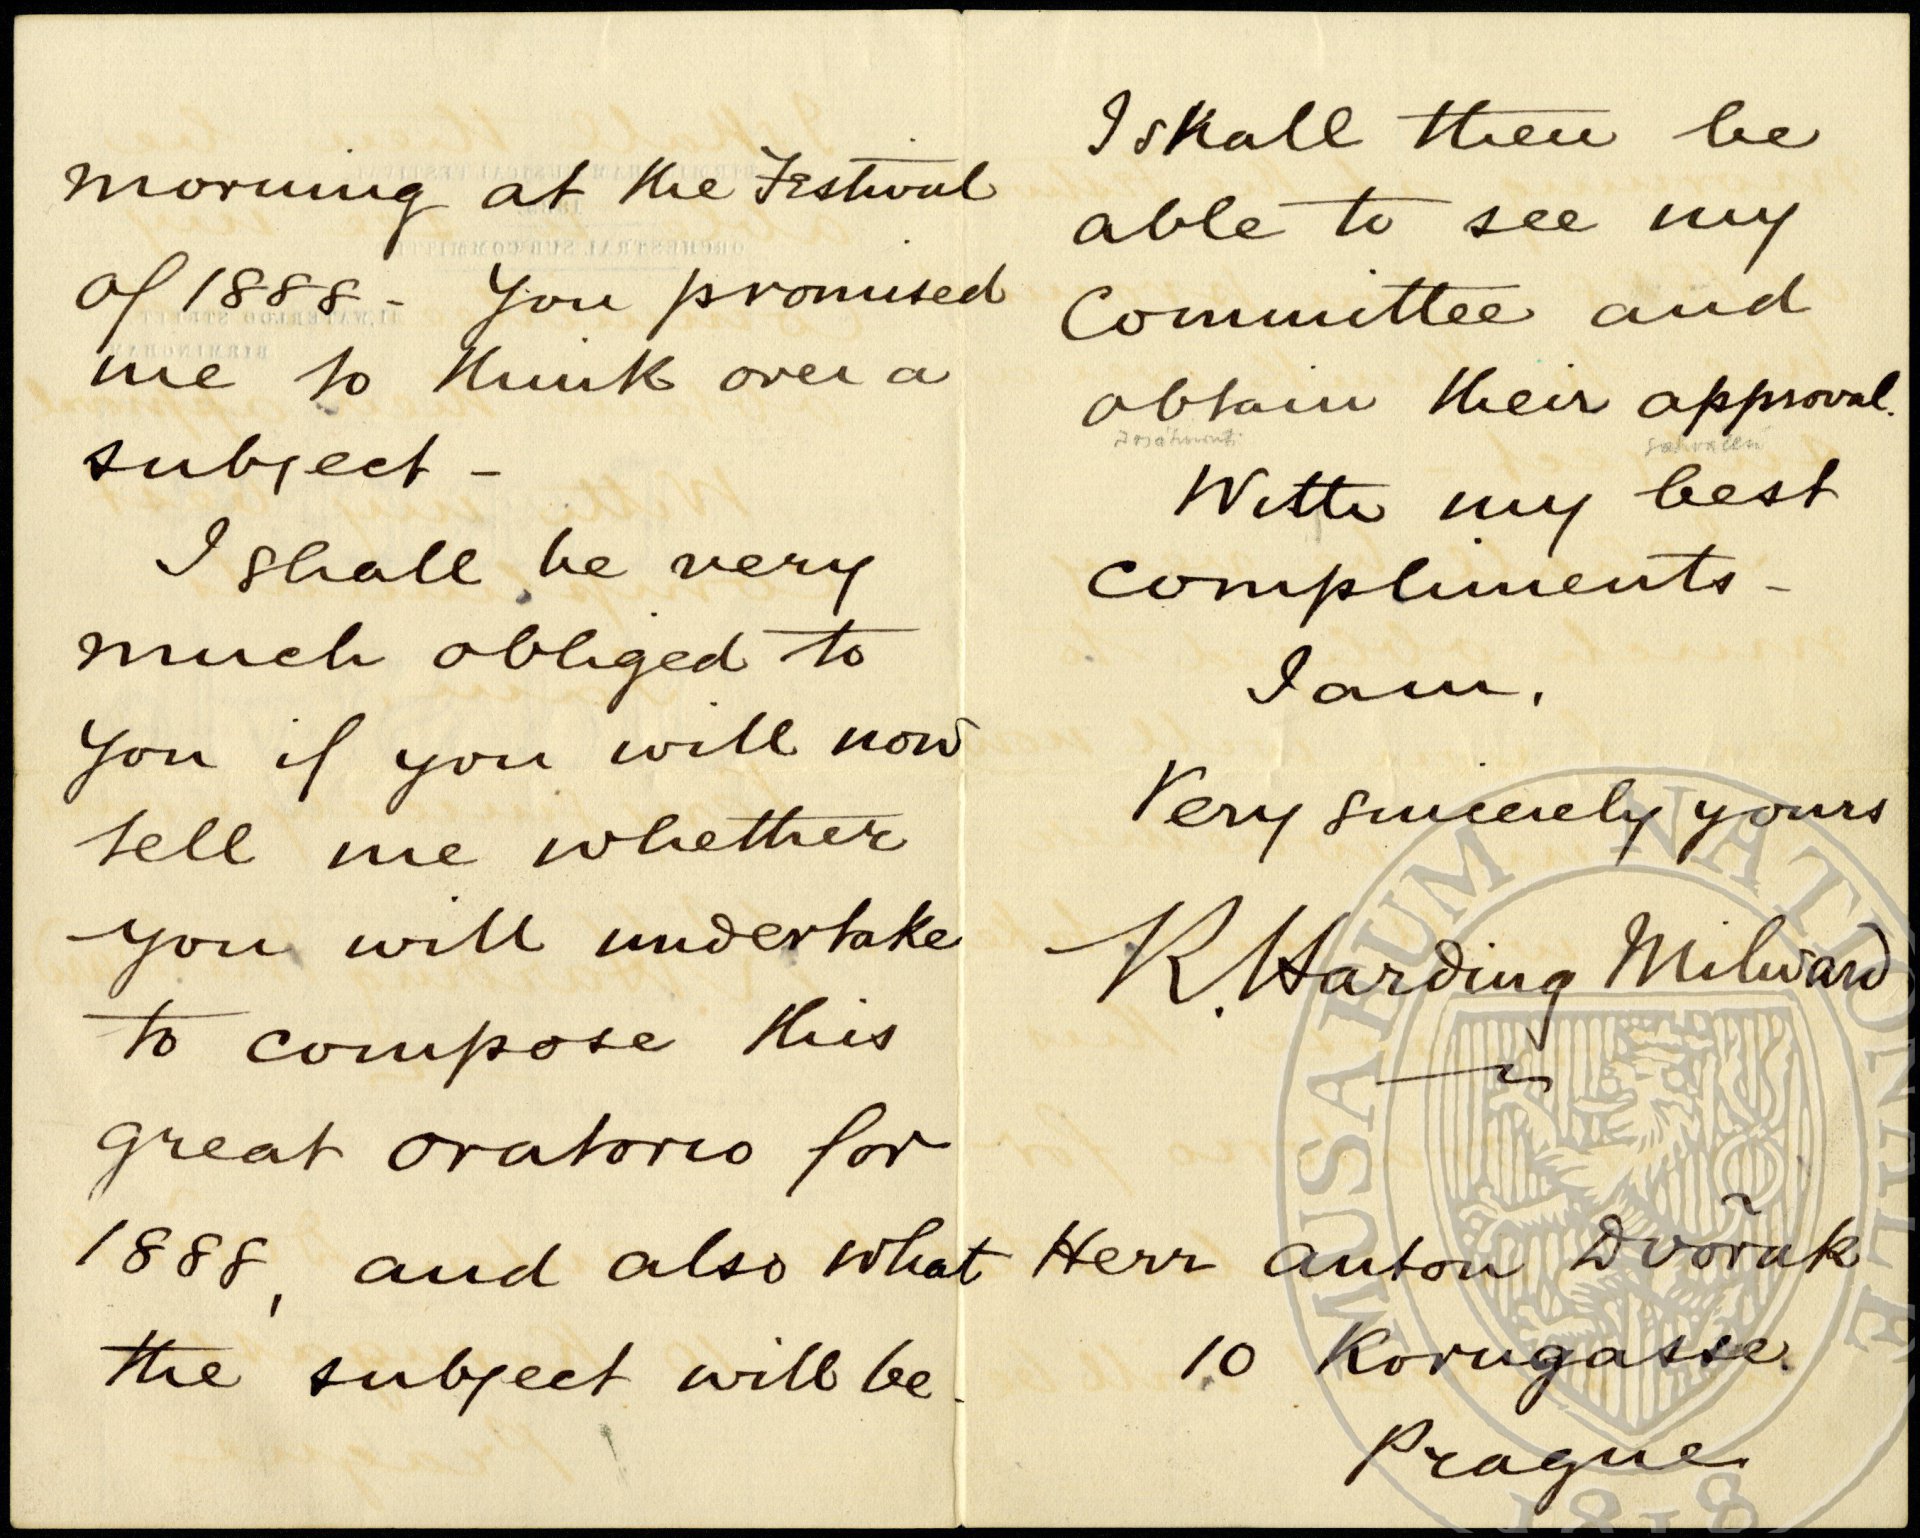 morning at the Festival
of 1888 - you promised
me to think over a
subject -
I shall be very
much obliged to
you if you will now
tell me whether
you will undertake
to compose this
great oratorio for
1888, and also what
the subject will be.
I shall then be
able to see my
Committee and
obtain their approval.
dosáhnouti schválení
With my best
compliments -
I am,
Very sincerely yours
R. Harding Milward
Herr Anton Dvořak
10 Korngasse.
Prague.
MUSAEUM NATIONALE
1818